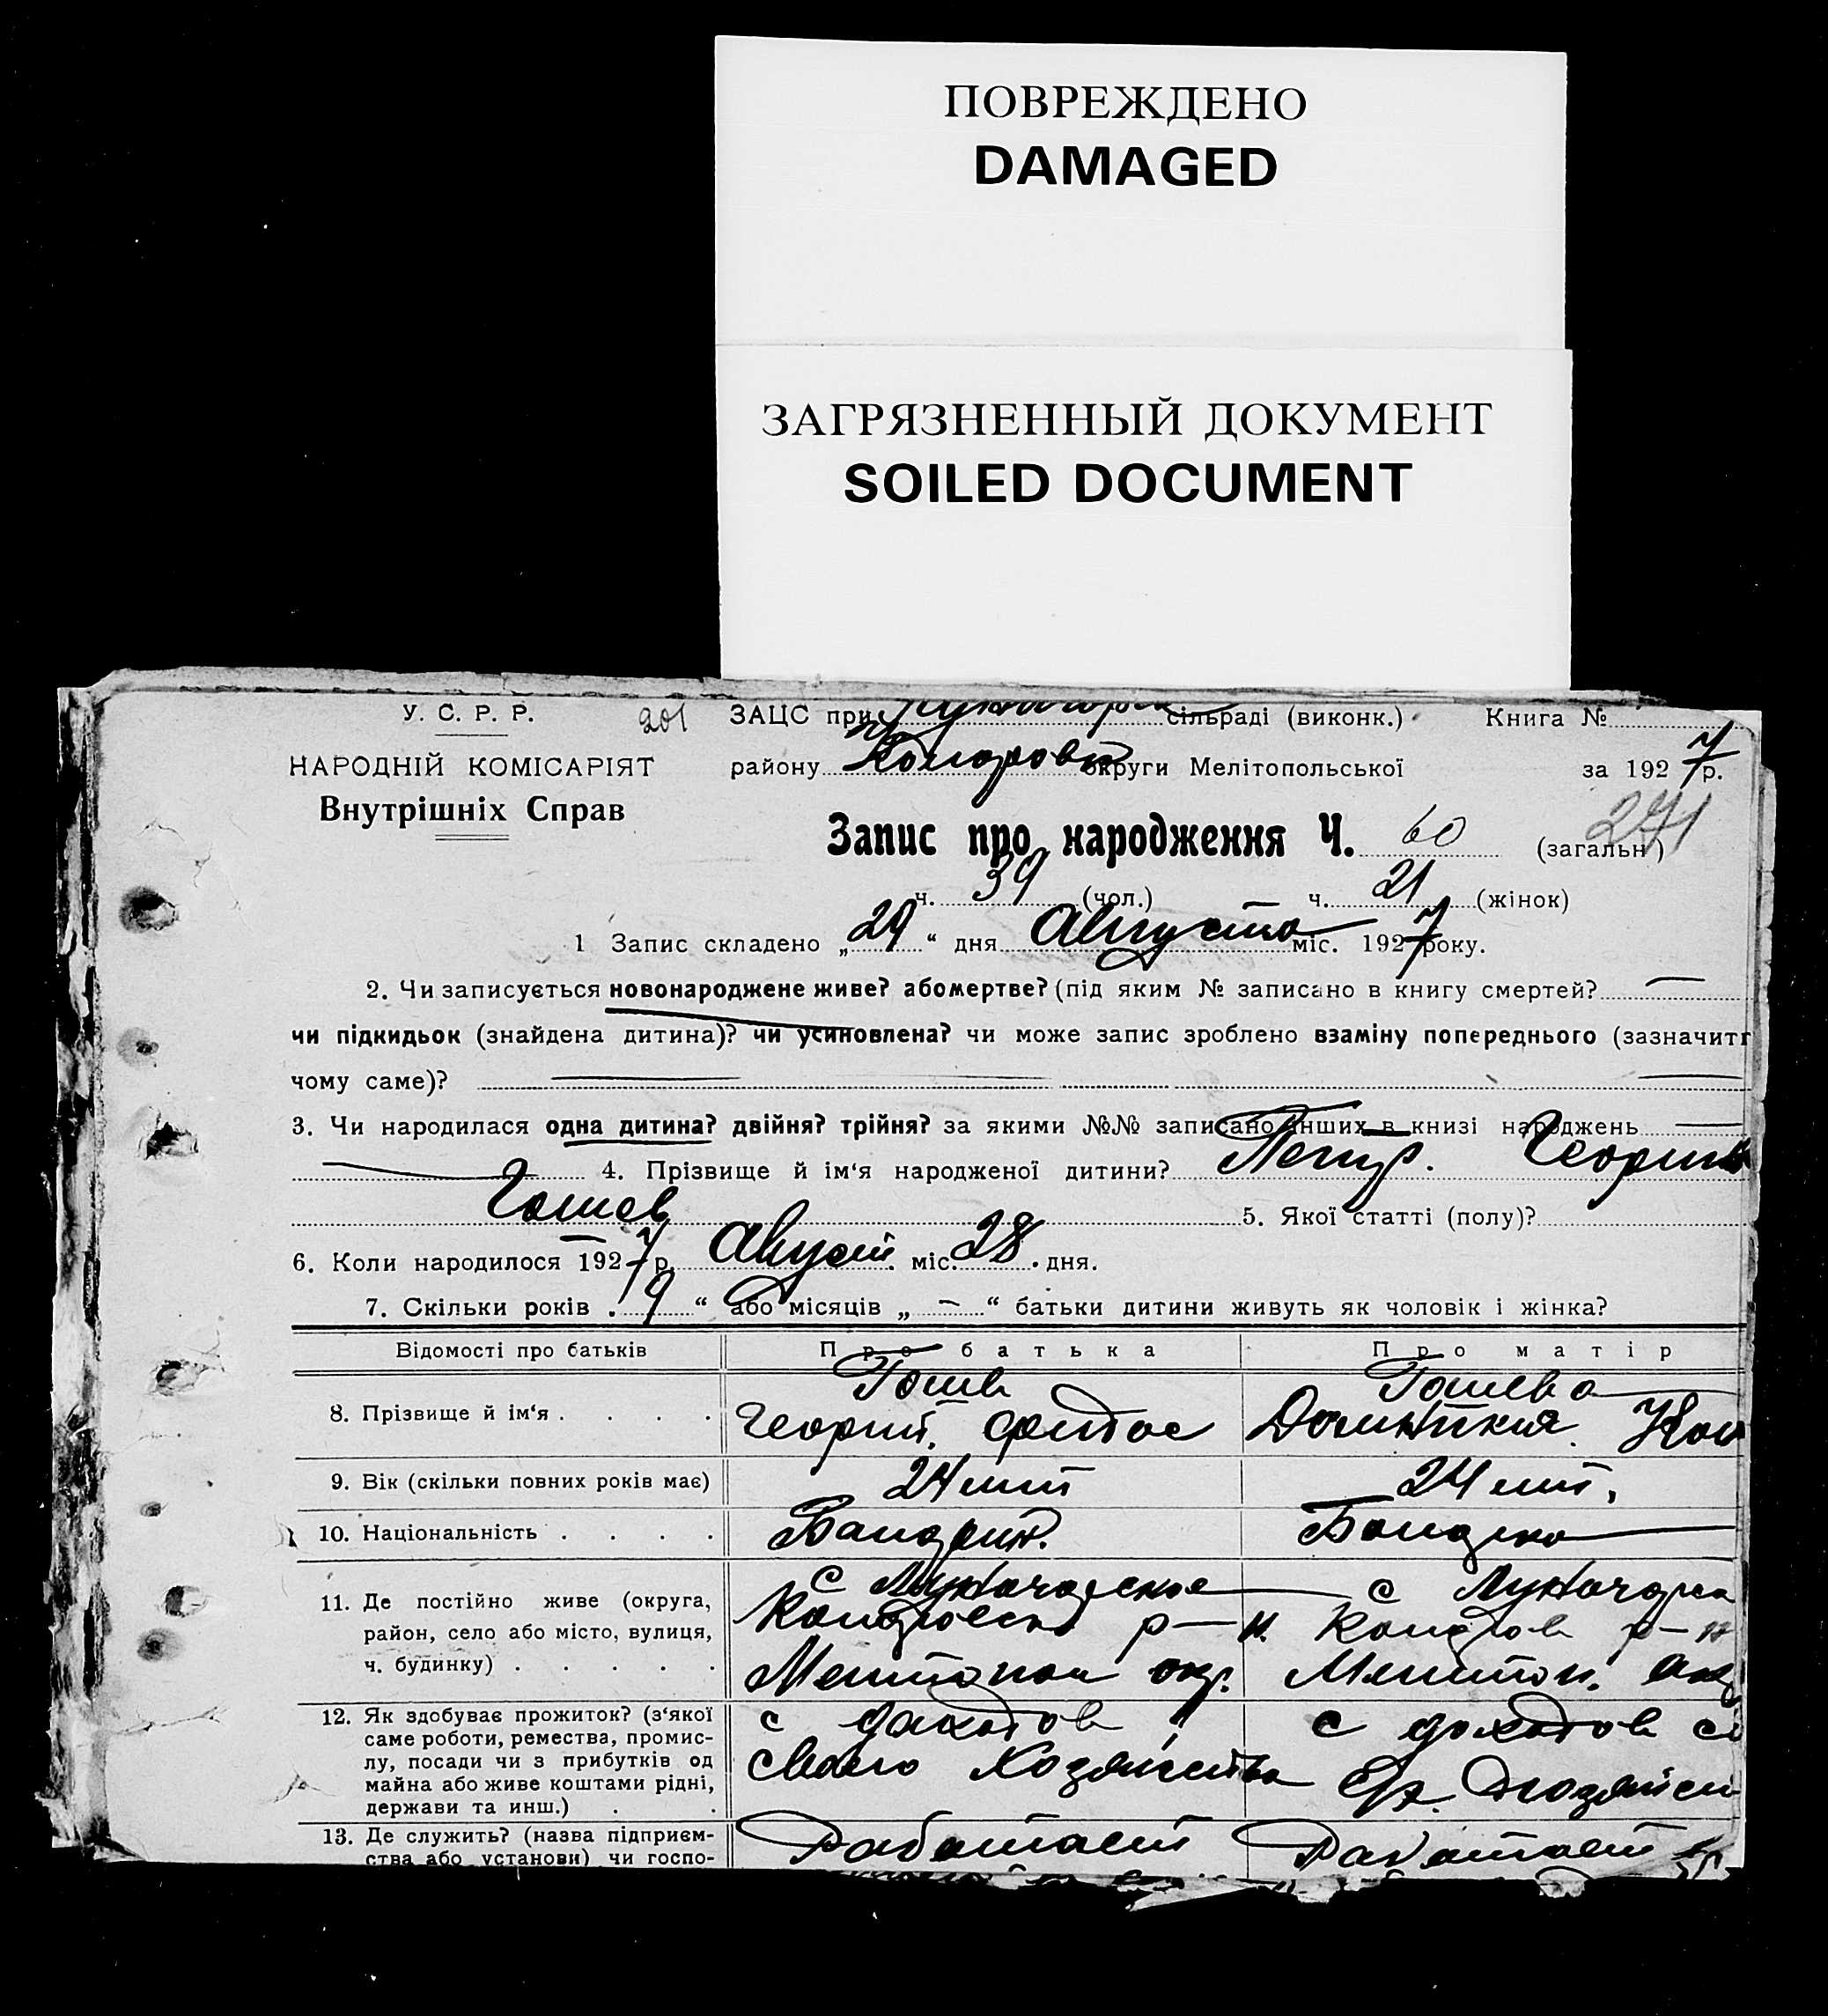 ПОВРЕЖДЕНО
DAMAGED
ЗАГРЯЗНЕННЫЙ ДОКУМЕНТ
SOILED DOCUMENT
У. С. Р. Р. 201 ЗАЦС при сільраді (виконк.) Книга №
НАРОДНІЙ КОМІСАРІЯТ району округи Мелітопольської за 1927 р.
Внутрішніх Справ
271
Запис про народження Ч. 60 (загальн)
ч. 39 (чол.) ч. 21 (жінок)
1 Запис складено „29“ дня Августа міс. 1927 року.
2. Чи записується новонароджене живе? або мертве? (під яким № записано в книгу смертей? —
чи підкидьок (знайдена дитина)? чи усиновлена? чи може запис зроблено взаміну попереднього (зазначити
чому саме)? —
3. Чи народилася одна дитина? двійня? трійня? за якими №№ записано інших в книзі народжень —
— 4. Прізвище й ім'я народженої дитини? Петр. Георгиев
Гошев 5. Якої статті (полу)?
6. Коли народилося 1927 р. Август. міс. 28. дня.
7. Скільки років „9“ або місяців „—“ батьки дитини живуть як чоловік і жінка?
Відомості про батьків Про батька Про матір
Гошев Гошева
8. Прізвище й ім'я . . . . Георгий.
9. Вік (скільки повних років має) 24 лет 24 лет.
10. Національність . . . .
с Луначарское с Луначарск
11. Де постійно живе (округа, р-н. р-н
район, село або місто, вулиця,
ч. будинку) . . . . . Мелитопол окр. Мелитоп. окр
12. Як здобуває прожиток? (з'якої с доходов с доходов
саме роботи, ремества, промис-
лу, посади чи з прибутків од своего Хозяйства
майна або живе коштами рідні,
держави та инш.) . .
13. Де служить? (назва підприєм- Работает Работает
ства або установи) чи госпо-